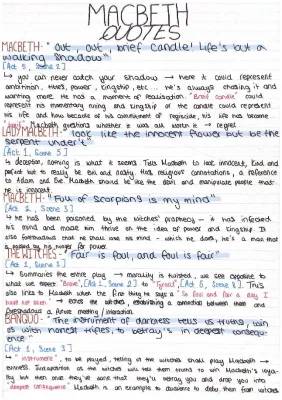 MACBETH
QUOTES
MACBETH- "Out, out, brief candle! Life's but a
walking shadow"
[Act 5, Scene 2]
↳ you can never catch your shadow → here it could represent
ambition, titles, power, kingship, etc... He's always chasing it and
wanting more. He has a moment of realisation. "Brief candle" could
represent his momentary ruling and kingship of the candle could represent
his life and how because of his commitment of regicide, his life has become
Macbeth questions whether it was all worth it → regret
LADY MACBETH- "look like the innocent flower but be the
serpent under't"
[Act 1, Scene 5]
↳ deception, nothing is what it seems. Tells Macbeth to look innocent, kind and
perfect but to really be evil and nasty. Has religious connotations, a reference
to Adam and Eve. Macbeth should be like the devil and manipulate people that
he is innocent.
MACBETH- "Full of scorpions is my mind"
[Act 3, Scene 2]
↳ he has been poisoned by the witches' prophecy → it has infected
his mind and make him thrive on the idea of power and kingship. It
also foreshadows that he shall lose his mind - which he does, he's a man that
is by his hunger for power.
THE WITCHES- "Fair is foul, and foul is fair"
[Act 1, Scene 1]
↳ Summarises the entire play → morality is twisted, we see opposite to
what we expect "Brave" [Act 1, Scene 2] to "Tyrant" [Act 5, Scene 8]. This
also links to Macbeth when the first thing he says is "So foul and fair a day I
have not seen" → echos the witches, establishing a connection between them and
foreshadows a future meeting/interaction.
BANQUO- "The instruments of darkness tells us truths, win
us with honest trifles, to betray's in deepest consequ-
ence"
[Act 1, Scene 3]
↳ "instruments", to be played, telling us the witches shall play Macbeth →
evilness. Juxtaposition as the witches will tell them truths to win Macbeth's loya-
lty but then once they've done that they'll betray you and drop you into
deepest consequence. Macbeth is an example to audience to deny them from witches